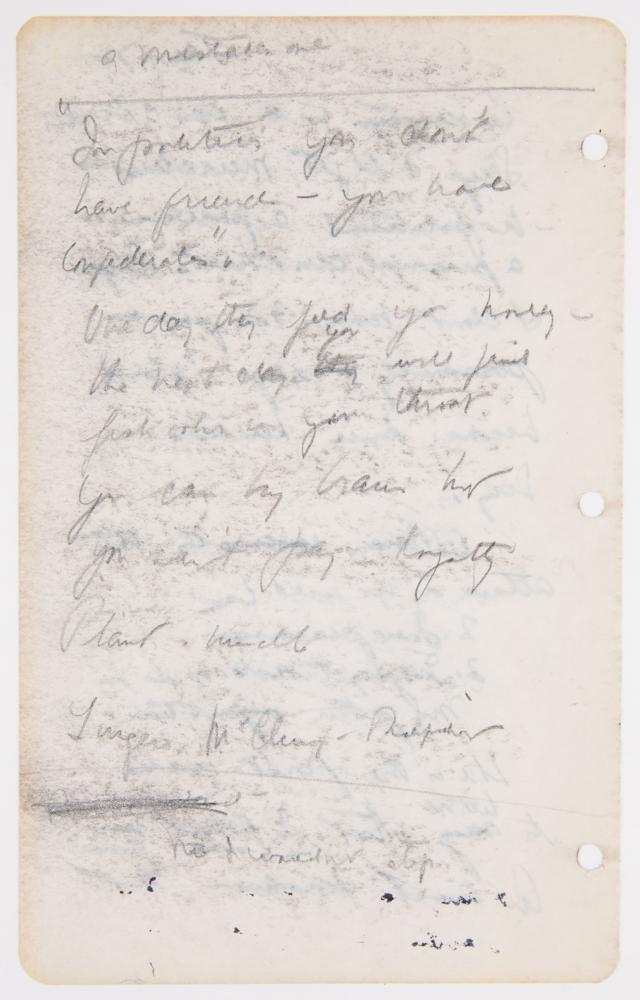 a mistaken one
"In politics you don't
have friends - you have
Confederates".
One day they feed you honey -
the next day you will find
fish in your throat
You can buy brains but
you can't buy loyalty
Plant
Singers, McClung -